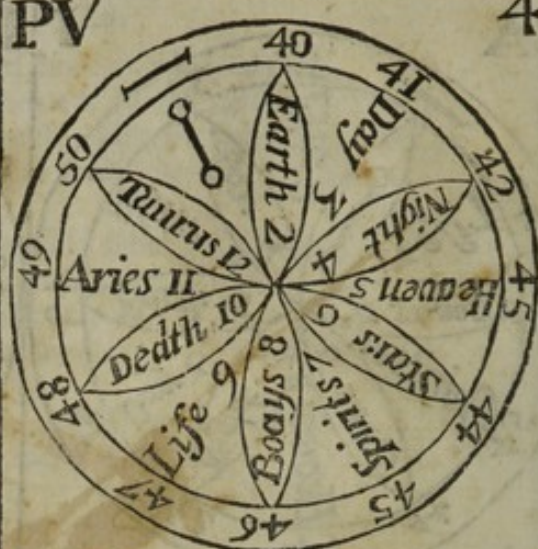 PV
4
40
41
42
43
44
45
46
47
48
49
50
Earth 2
Day 3
Night 4
Heaven 5
Stars 6
Spirits 7
Bodys 8
Life 9
Death 10
Aries 11
Taurus 12